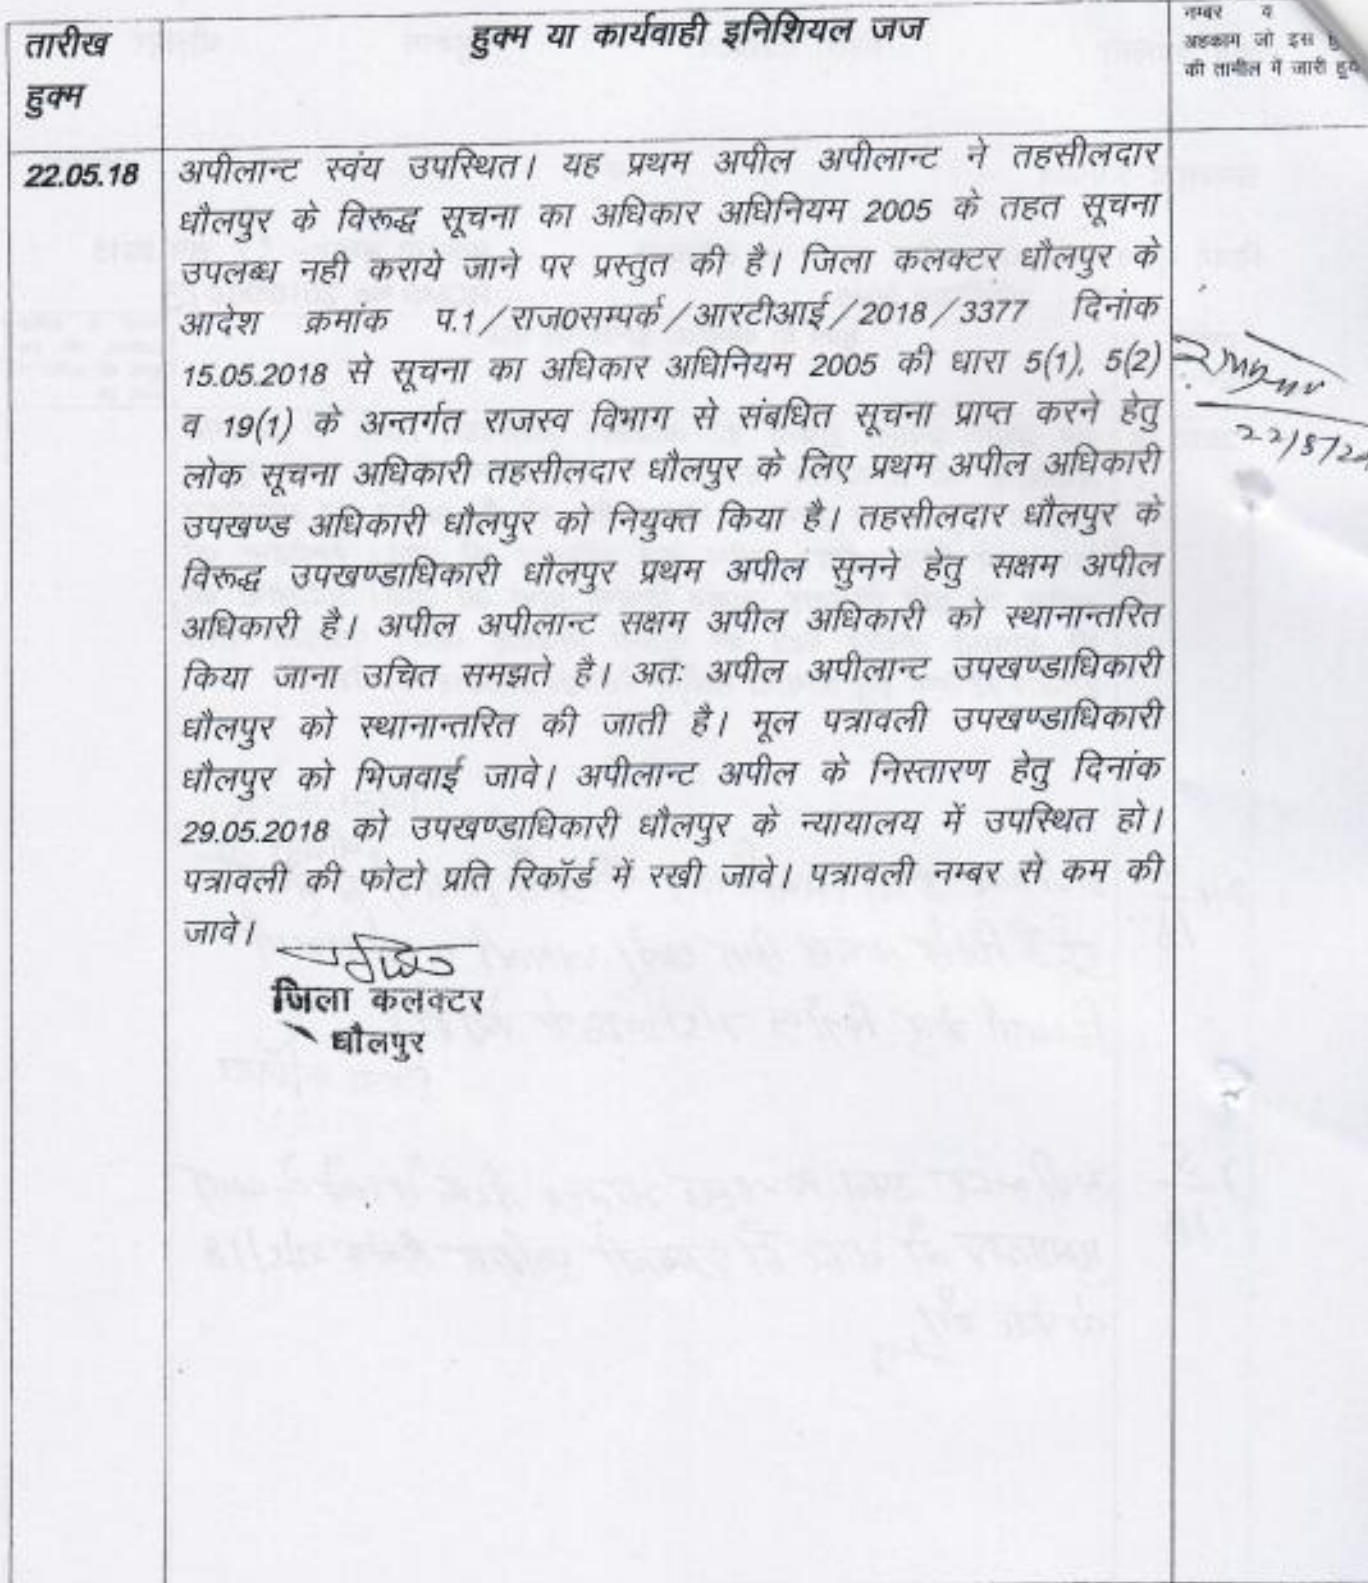 तारीख
हुक्म
हुक्म या कार्यवाही इनिशियल जज
नम्बर व
अहकाम जो इस
की तामील में जारी हुये
22.05.18
अपीलान्ट स्वंय उपस्थित। यह प्रथम अपील अपीलान्ट ने तहसीलदार
धौलपुर के विरूद्ध सूचना का अधिकार अधिनियम 2005 के तहत सूचना
उपलब्ध नही कराये जाने पर प्रस्तुत की है। जिला कलक्टर धौलपुर के
आदेश क्रमांक प.1/राज0सम्पर्क/आरटीआई/2018/3377 दिनांक
15.05.2018 से सूचना का अधिकार अधिनियम 2005 की धारा 5(1), 5(2)
व 19(1) के अन्तर्गत राजस्व विभाग से संबधित सूचना प्राप्त करने हेतु
लोक सूचना अधिकारी तहसीलदार धौलपुर के लिए प्रथम अपील अधिकारी
उपखण्ड अधिकारी धौलपुर को नियुक्त किया है। तहसीलदार धौलपुर के
विरूद्ध उपखण्डाधिकारी धौलपुर प्रथम अपील सुनने हेतु सक्षम अपील
अधिकारी है। अपील अपीलान्ट सक्षम अपील अधिकारी को स्थानान्तरित
किया जाना उचित समझते है। अतः अपील अपीलान्ट उपखण्डाधिकारी
धौलपुर को स्थानान्तरित की जाती है। मूल पत्रावली उपखण्डाधिकारी
धौलपुर को भिजवाई जावे। अपीलान्ट अपील के निस्तारण हेतु दिनांक
29.05.2018 को उपखण्डाधिकारी धौलपुर के न्यायालय में उपस्थित हो।
पत्रावली की फोटो प्रति रिकॉर्ड में रखी जावे। पत्रावली नम्बर से कम की
जावे।
जिला कलक्टर
धौलपुर